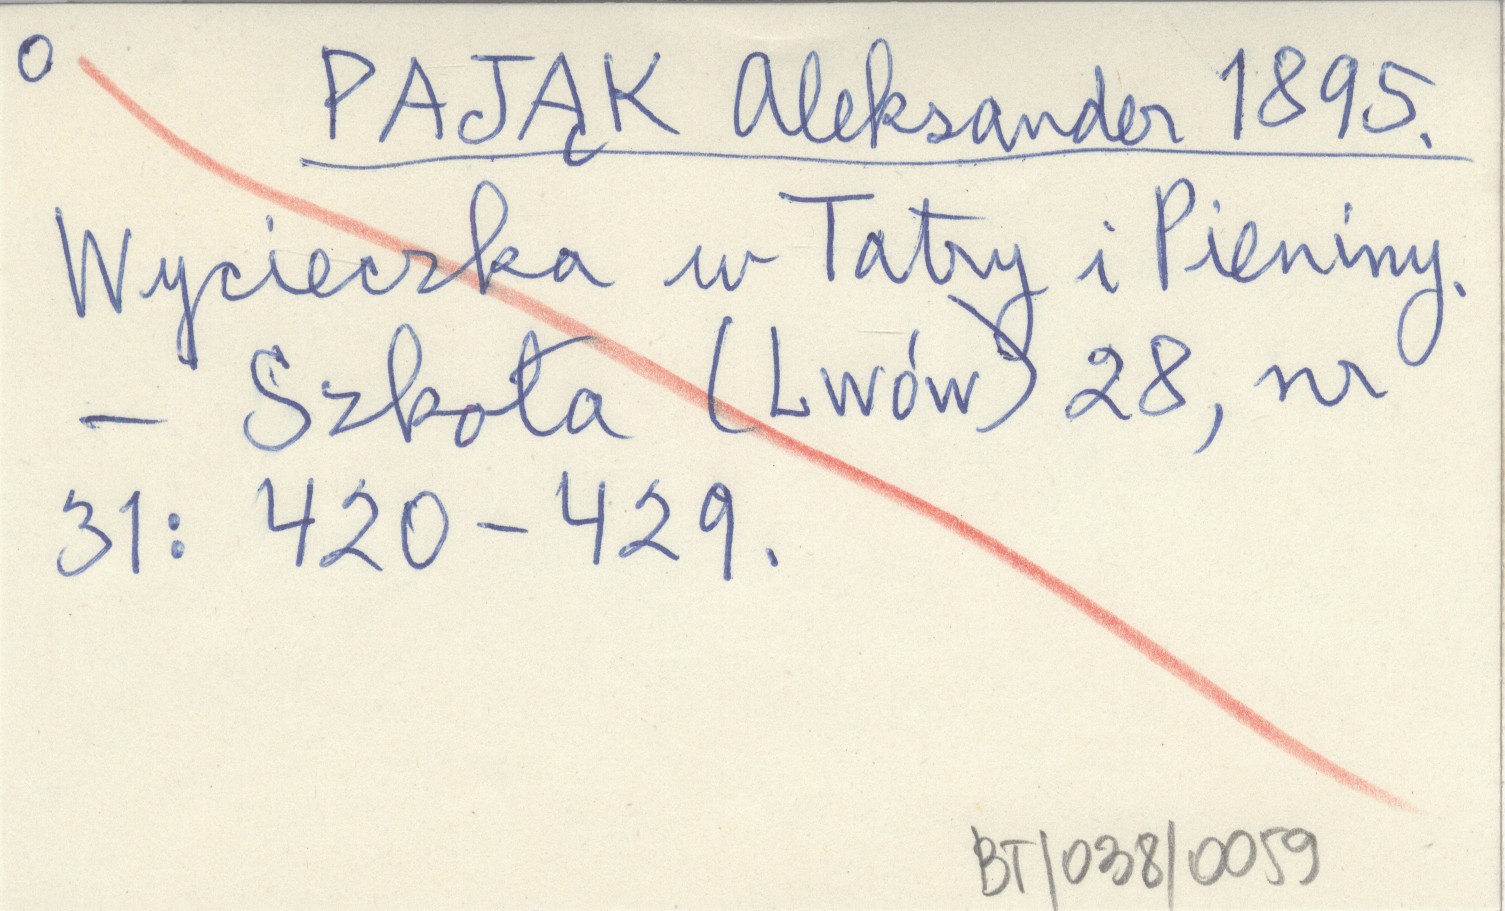 O PAJĄK Aleksander 1895.
Wycieczka w Tatry i Pieniny.
– Szkoła (Lwów) 28, nr
31: 420–429.
BT/038/0059